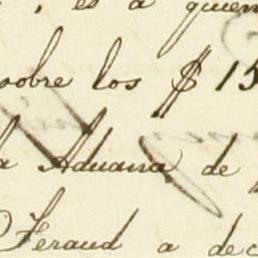 , es a quien
sobre los $ 15
a Aduana de
Feraud a dec